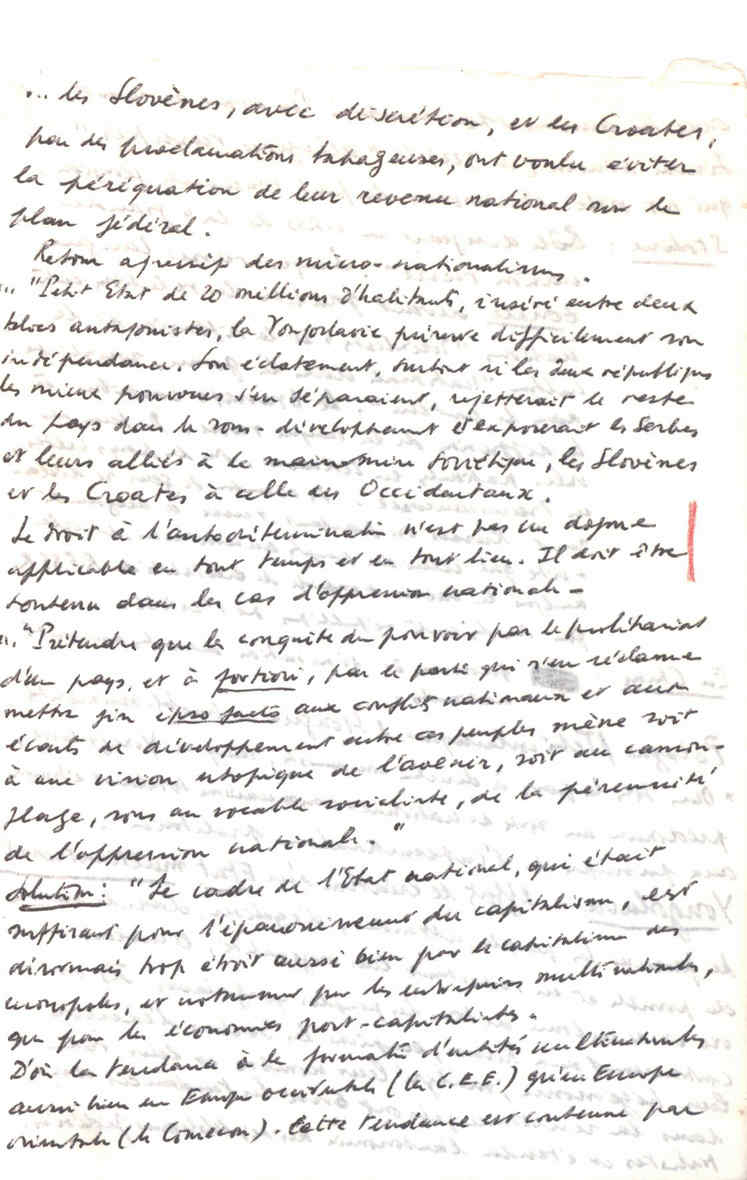 ... les Slovènes, avec discrétion, et les Croates,
par des proclamations tapageuses, ont voulu éviter
la péréquation de leur revenu national sur le
plan fédéral.
Retour agressif des micro-nationalismes.
... "Petit Etat de 20 millions d'habitants, inséré entre deux
blocs antagonistes, la Yougoslavie préserve difficilement son
indépendance. Son éclatement, surtout si les deux républiques
les mieux pourvues s'en séparaient, rejetterait le reste
du pays dans le sous-développement et exposerait les Serbes
et leurs alliés à la mainmise soviétique, les Slovènes
et les Croates à celle des Occidentaux.
Le droit à l'autodétermination n'est pas un dogme
applicable en tout temps et en tout lieu. Il doit être
soutenu dans les cas d'oppression nationale -
... "Prétendre que la conquête du pouvoir par le prolétariat
d'un pays, et à fortiori, par le parti qui s'en réclame
mettra fin ipso facto aux conflits nationaux et aux
écarts de développement entre ces peuples mène soit
à une vision utopique de l'avenir, soit au camou-
flage, sous un vocable socialiste, de la pérennité
de l'oppression nationale."
Solution : "Le cadre de l'Etat national, qui était
suffisant pour l'épanouissement du capitalisme, est
désormais trop étroit aussi bien par le capitalisme des
monopoles, et notamment par les entreprises multinationales,
que pour les économies post-capitalistes.
D'où la tendance à la formation d'entités multinationales
aussi bien en Europe occidentale (la C.E.E.) qu'en Europe
orientale (le Comecon). Cette tendance est contenue par